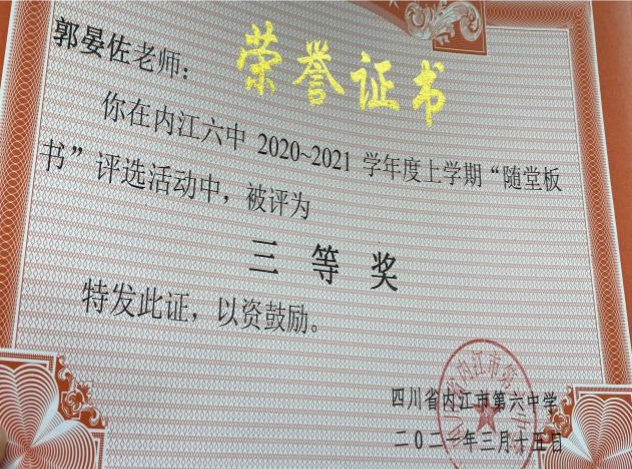 荣誉证书
郭晏佐老师：
你在内江六中 2020~2021 学年度上学期“随堂板
书”评选活动中，被评为
三等奖
特发此证，以资鼓励。
四川省内江市第六中学
二〇二一年三月十五日